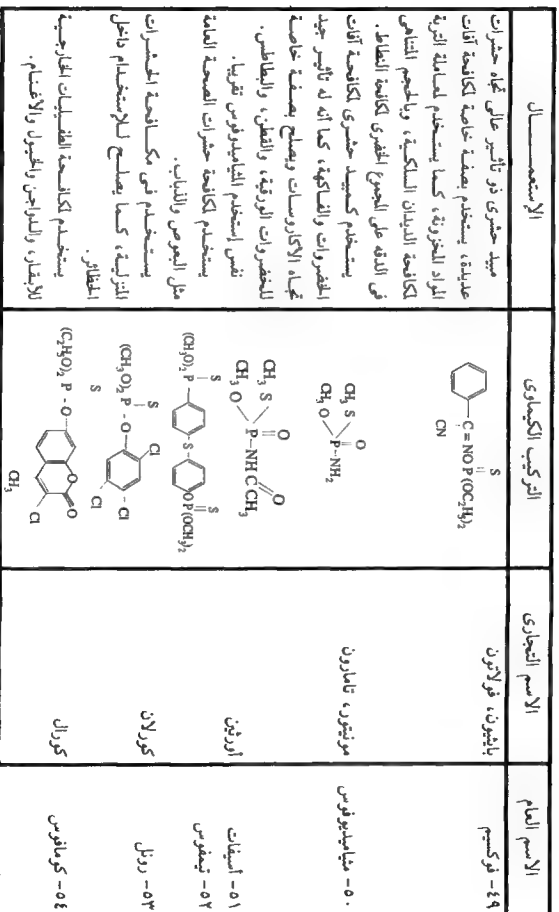 الاسم العام
الاسم التجارى
التركيب الكيماوى
الاستعمـــــــال
٤٩- فوكسيم
باثيون، فولاتون
C = NOP (OC2H5)2
S
CN
مبيد حشرى ذو تأثير عالى تجاه حشرات
عديدة، يستخدم بصفة خاصة لمكافحة آفات
المواد المخزونة، كما يستخدم لمعاملة التربة
لمكافحة الديدان السلكية، وبالحجم المتناهى
فى الدقه على المجموع الخضرى لمكافحة النطاط.
٥٠- ميثاميديوفوس
مونيتور، تامارون
CH3 S
O
CH3 O
P-NH2
يستخدم كمبيد حشرى لمكافحة آفات
الخضروات والفاكهة، كما أنه له تأثير جيد
تجاه الاكاروسات ويصلح بصفة خاصة
للخضروات الورقية، والقطن، والبطاطس.
٥١- أسيفات
أورثين
CH3 S
O
O
CH3 O
P-NHCCH3
نفس إستخدم الثاميدوفوس تقريبا.
٥٢- تيمفوس
(CH3O)2 P
S
S
S
OP(OCH3)2
يستخدم لمكافحة حشرات الصحة العامة
مثل البعوض والذباب.
٥٣- رونل
كورلان
(CH3O)2 P - O
S
Cl
Cl
Cl
يستخدم فى مكافحة الحشرات
المنزلية، كما يصلح للإستخدام داخل
الحظائر.
٥٤- كومافوس
كورال
(C2H5O)2 P - O
S
O
O
Cl
CH3
يستخدم لمكافحة الطفيليات الخارجية
للأبقار، والدواجن والخيول والأغنام.